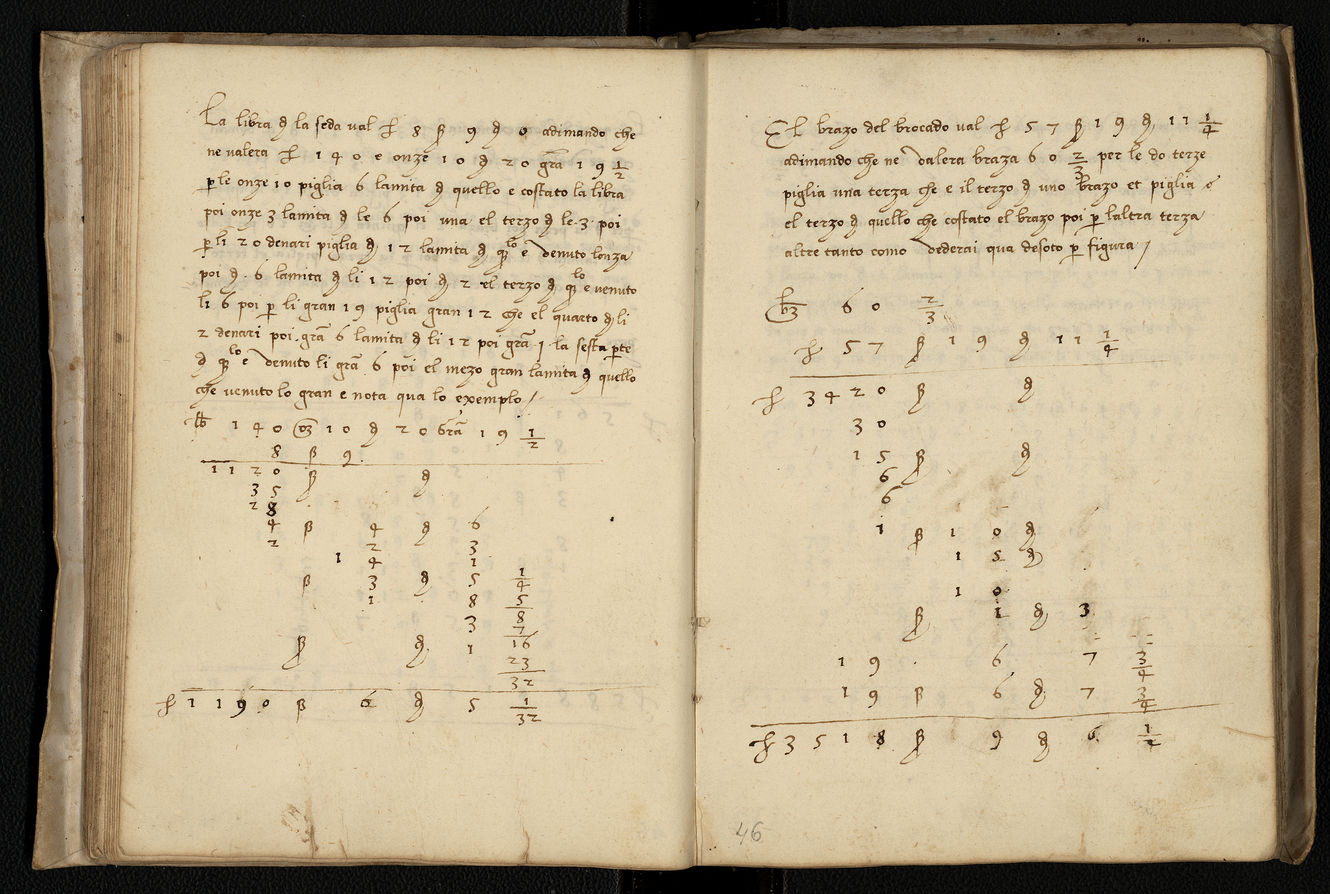 La libra d la seda val £ 8 ß 9 d 0 adimando che
ne valera £ 1 4 0 e onze 1 0 d 2 0 gra 1 9 1/2
p le onze 10 piglia 6 lamita d quello e costato la libra
poi onze 3 lamita d le 6 poi una el terzo d le 3 poi
p li 20 denari piglia d 12 lamita d q lo e denuto lonza
poi d 6 lamita d li 12 poi d 2 el terzo d q lo e venuto
li 6 poi p li gran 19 piglia gran 12 che el quarto d li
2 denari poi gra 6 lamita d li 12 poi gra 1 la sesta pte
d q lo e denuto li gra 6 poi el mezo gran lamita d quello
che venuto lo gran e nota qua lo exemplo /
lb 1 4 0 oz 1 0 d 2 0 Gra 1 9 1/2
8 ß 9
1 1 2 0 ß d
3 5
2 8
4 ß 4 d 6
2 2 3
1 4 1
ß 3 d 5 1/4
1 8 5/8
3 7/16
ß d 1 23/32
£ 1 1 9 0 ß 6 d 5 1/32
El brazo del brocado val £ 5 7 ß 1 9 d 11 1/4
adimando che ne valera braza 6 0 2/3 per le do terze
piglia una terza che e il terzo d uno brazo et piglia
el terzo d quello che costato el brazo poi p laltra terza
altre tanto como vederai qua desoto p figura /
bz 6 0 2/3
£ 5 7 ß 1 9 d 11 1/4
£ 3 4 2 0 ß d
3 0
1 5 ß d
6
6
1 ß 1 0 d
1 5 d
1 0
ß 1 d 3
1 9 6 7 3/4
1 9 ß 6 d 7 3/4
£ 3 5 1 8 ß 9 d 6 1/2
46